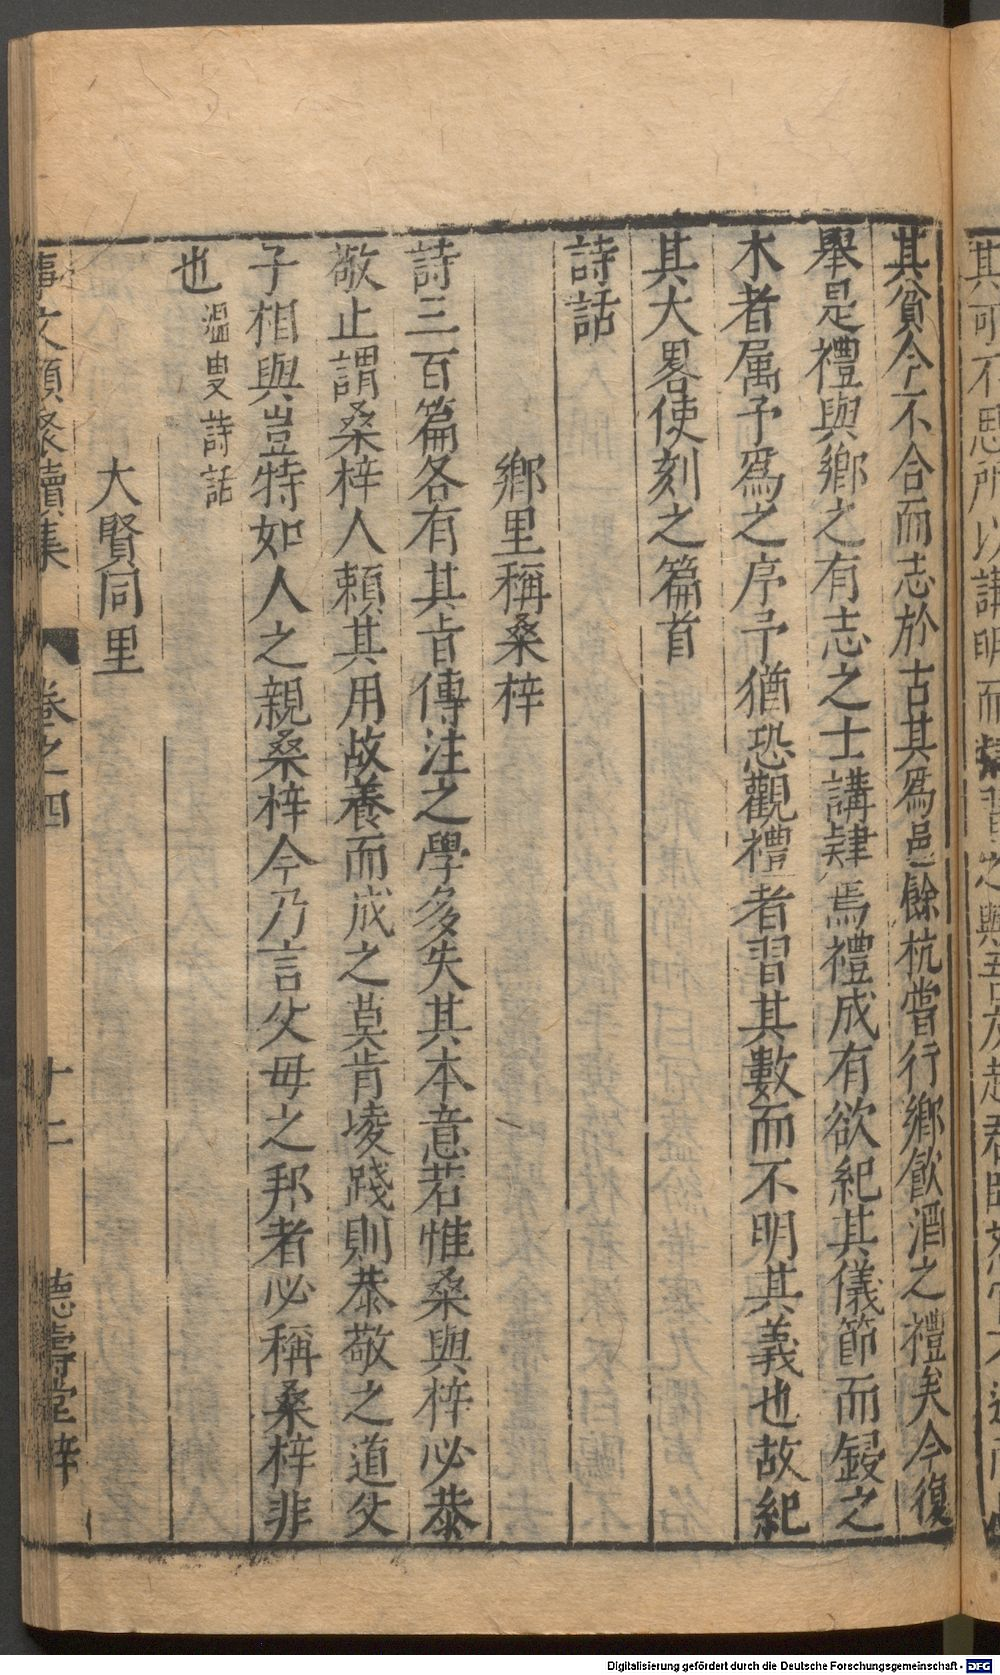 其貧今不合而志於古其爲邑餘杭嘗行鄉飮酒之禮矣今復
舉是禮與鄉之有志之士講肄焉禮成有欲紀其儀節而鋟之
木者属予爲之序予猶恐觀禮者習其數而不明其義也故紀
其大畧使刻之篇首
詩話
鄉里稱桑梓
詩三百篇各有其旨傳注之學多失其本意若惟桑與梓必恭
敬止謂桑梓人賴其用故養而成之莫肯凌踐則恭敬之道父
子相與豈特如人之親桑梓今乃言父母之邦者必稱桑梓非
也 溫叟詩話
大賢同里
事文類聚續集 卷之四 十二 德壽堂梓
Digitalisierung gefördert durch die Deutsche Forschungsgemeinschaft - DFG